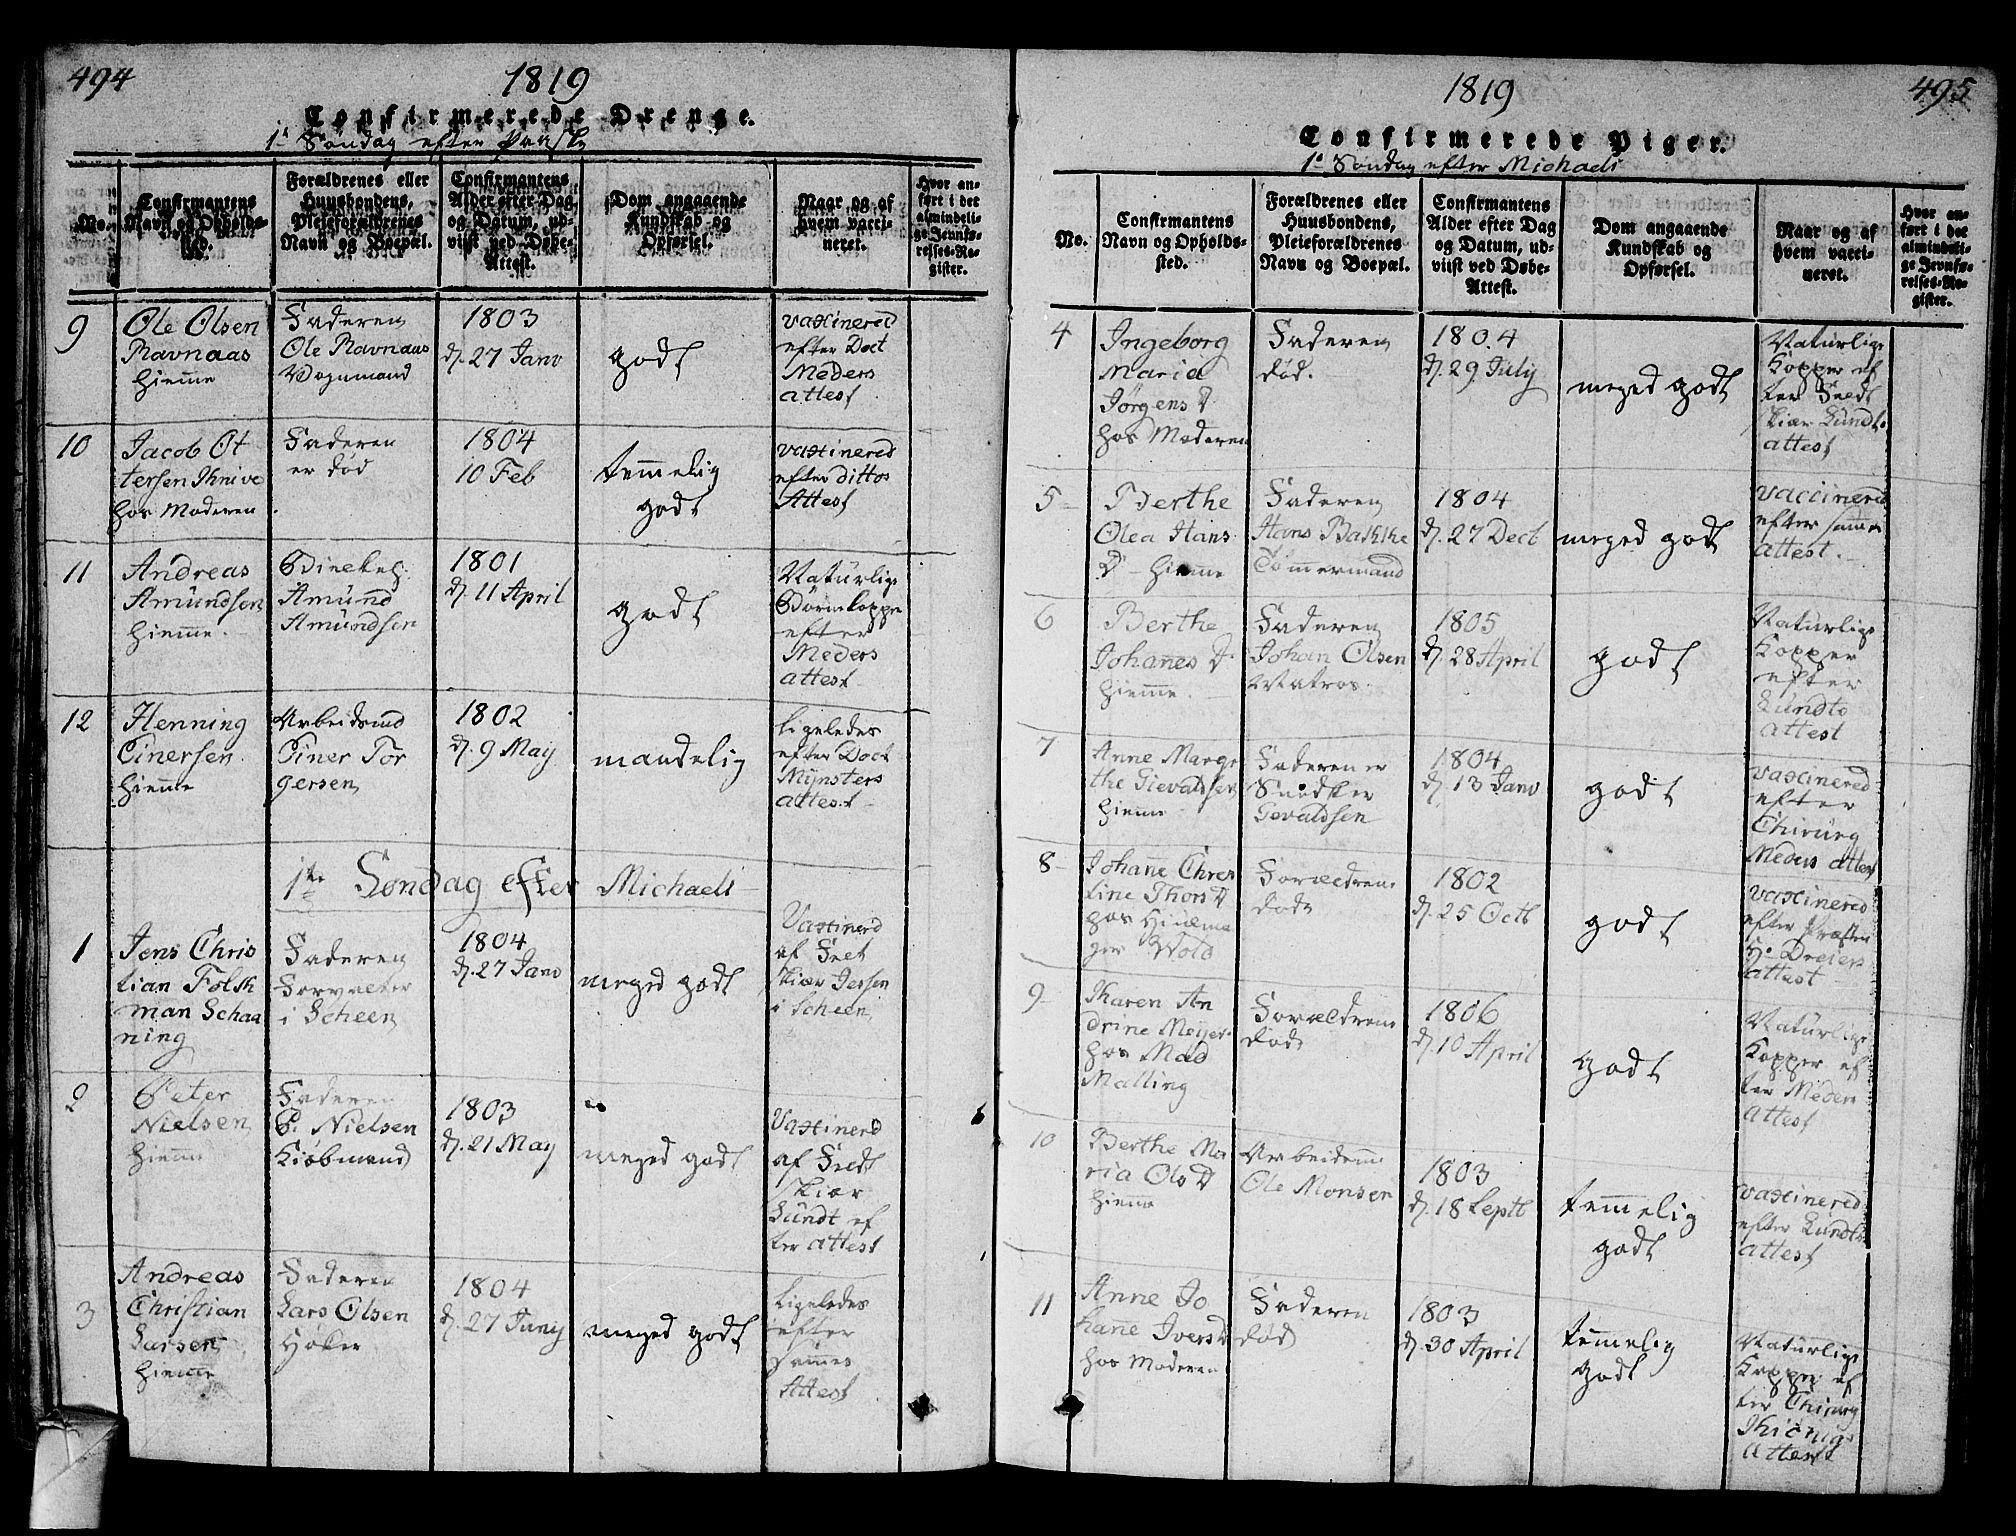 494
1819
Confirmerede Drenge.
1ᵉ Søndag efter Paaske
No.
Confirmantens Navn og Opholdssted.
Forældrenes eller Huusbondens, Pleieforældrenes Navn og Boepæl.
Confirmantens Alder efter Dag og Datum, udviist ved Døbe-Attest.
Dom angaaende Kundskab og Opførsel.
Naar og af hvem vaccineret.
Hvor anført i det almindelige Jevnførelses-Register.
9
Ole Olsen
Ravnaas
hiemme
Faderen
Ole Ravnaas
Vognmand
1803
d. 27 Janv
godt
vaxinered
efter Doct
Meders
attest
10
Jacob Ot
tersen Knive
hos Moderen
Faderen
er død
1804
10 Feb
temmelig
godt
vaxinered
efter dittos
Attest
11
Andreas
Amundsen
hiemme
Amund
Amundsen
1801
d. 11 April
godt
Naturlige
Børnekopper
efter
Meders
attest
12
Henning
Einersen
hiemme
Arbeidsmd
Einer Tor
gersen
1802
d. 9 May
maadelig
ligeledes
efter Doct
Mynsters
attest
1te Søndag efter Michaeli
1
Jens Chris
tian Folsk
man Schaa
ning
Faderen
Forvalter
i Scheen
1804
d. 27 Janv
meged godt
Vaxinerd
af Feltskiær Jersen
i Scheen
2
Peter
Nielsen
hiemme
Faderen
P. Nielsen
Kiøbmand
1803
d. 21 May
meged godt
Vaxinerd
af Feldt
skiær
Lundt ef
ter attest
3
Andreas
Christian
Larsen
hiemme
Faderen
Lars Olsen
Høker
1804
d. 27 Juny
meged godt
ligeledes
efter
sammes
Attest
1819
495
Confirmerede Piger.
1ᵉ Søndag efter Michaeli
No.
Confirmantens Navn og Opholdssted.
Forældrenes eller Huusbondens, Pleieforældrenes Navn og Boepæl.
Confirmantens Alder efter Dag og Datum, udviist ved Døbe-Attest.
Dom angaaende Kundskab og Opførsel.
Naar og af hvem vaccineret.
Hvor anført i det almindelige Jevnførelses-Register.
4
Ingeborg
Maria
Jørgens D
hos Moderen
Faderen
død.
1804
d. 29 July
meged godt
Naturlige
Kopper ef
ter Feldt
skiær Lundts
attest
5
Berthe
Olea Hans
D hiemme
Faderen
Hans Bakke
Tømmermand
1804
d. 27 Decb
meged godt
vaccinered
efter samme
attest.
6
Berthe
Johanes D
hiemme
Faderen
Johan Olsen
Matros
1805
d. 28 April
godt
Naturlige
Kopper
efter
Lundts
attest
7
Anne Margr
the Gievaldsen
hiemme
Faderen er
Snedker
Gevaldsen
1804
d. 13 Janv
godt
vaxinered
efter
Chirurg
Meders attest
8
Johane Chres
tine Thors D
hos Hiulma
ger Wold
Forældrene
døde
1802
d. 25 Octb
godt
vaxinered
efter Præsten
Hr Dreiers
attest
9
Karen An
drine Meyer
hos Mad
Malling
Forældrene
døde
1806
d. 10 April
godt
Naturlige
Kopper ef
ter Meders
attest
10
Berthe Ma
ria Ols D
hiemme
Arbeidsm
Ole Monsen
1803
d. 18 Septb
temmelig
godt
vaxinered
efter Lundts
attest
11
Anne Jo
hane Ivers D
hos Moderen
Faderen
død
1803
d. 30 April
temmelig
godt
Naturlige
Kopper ef
ter Chirurg
attest